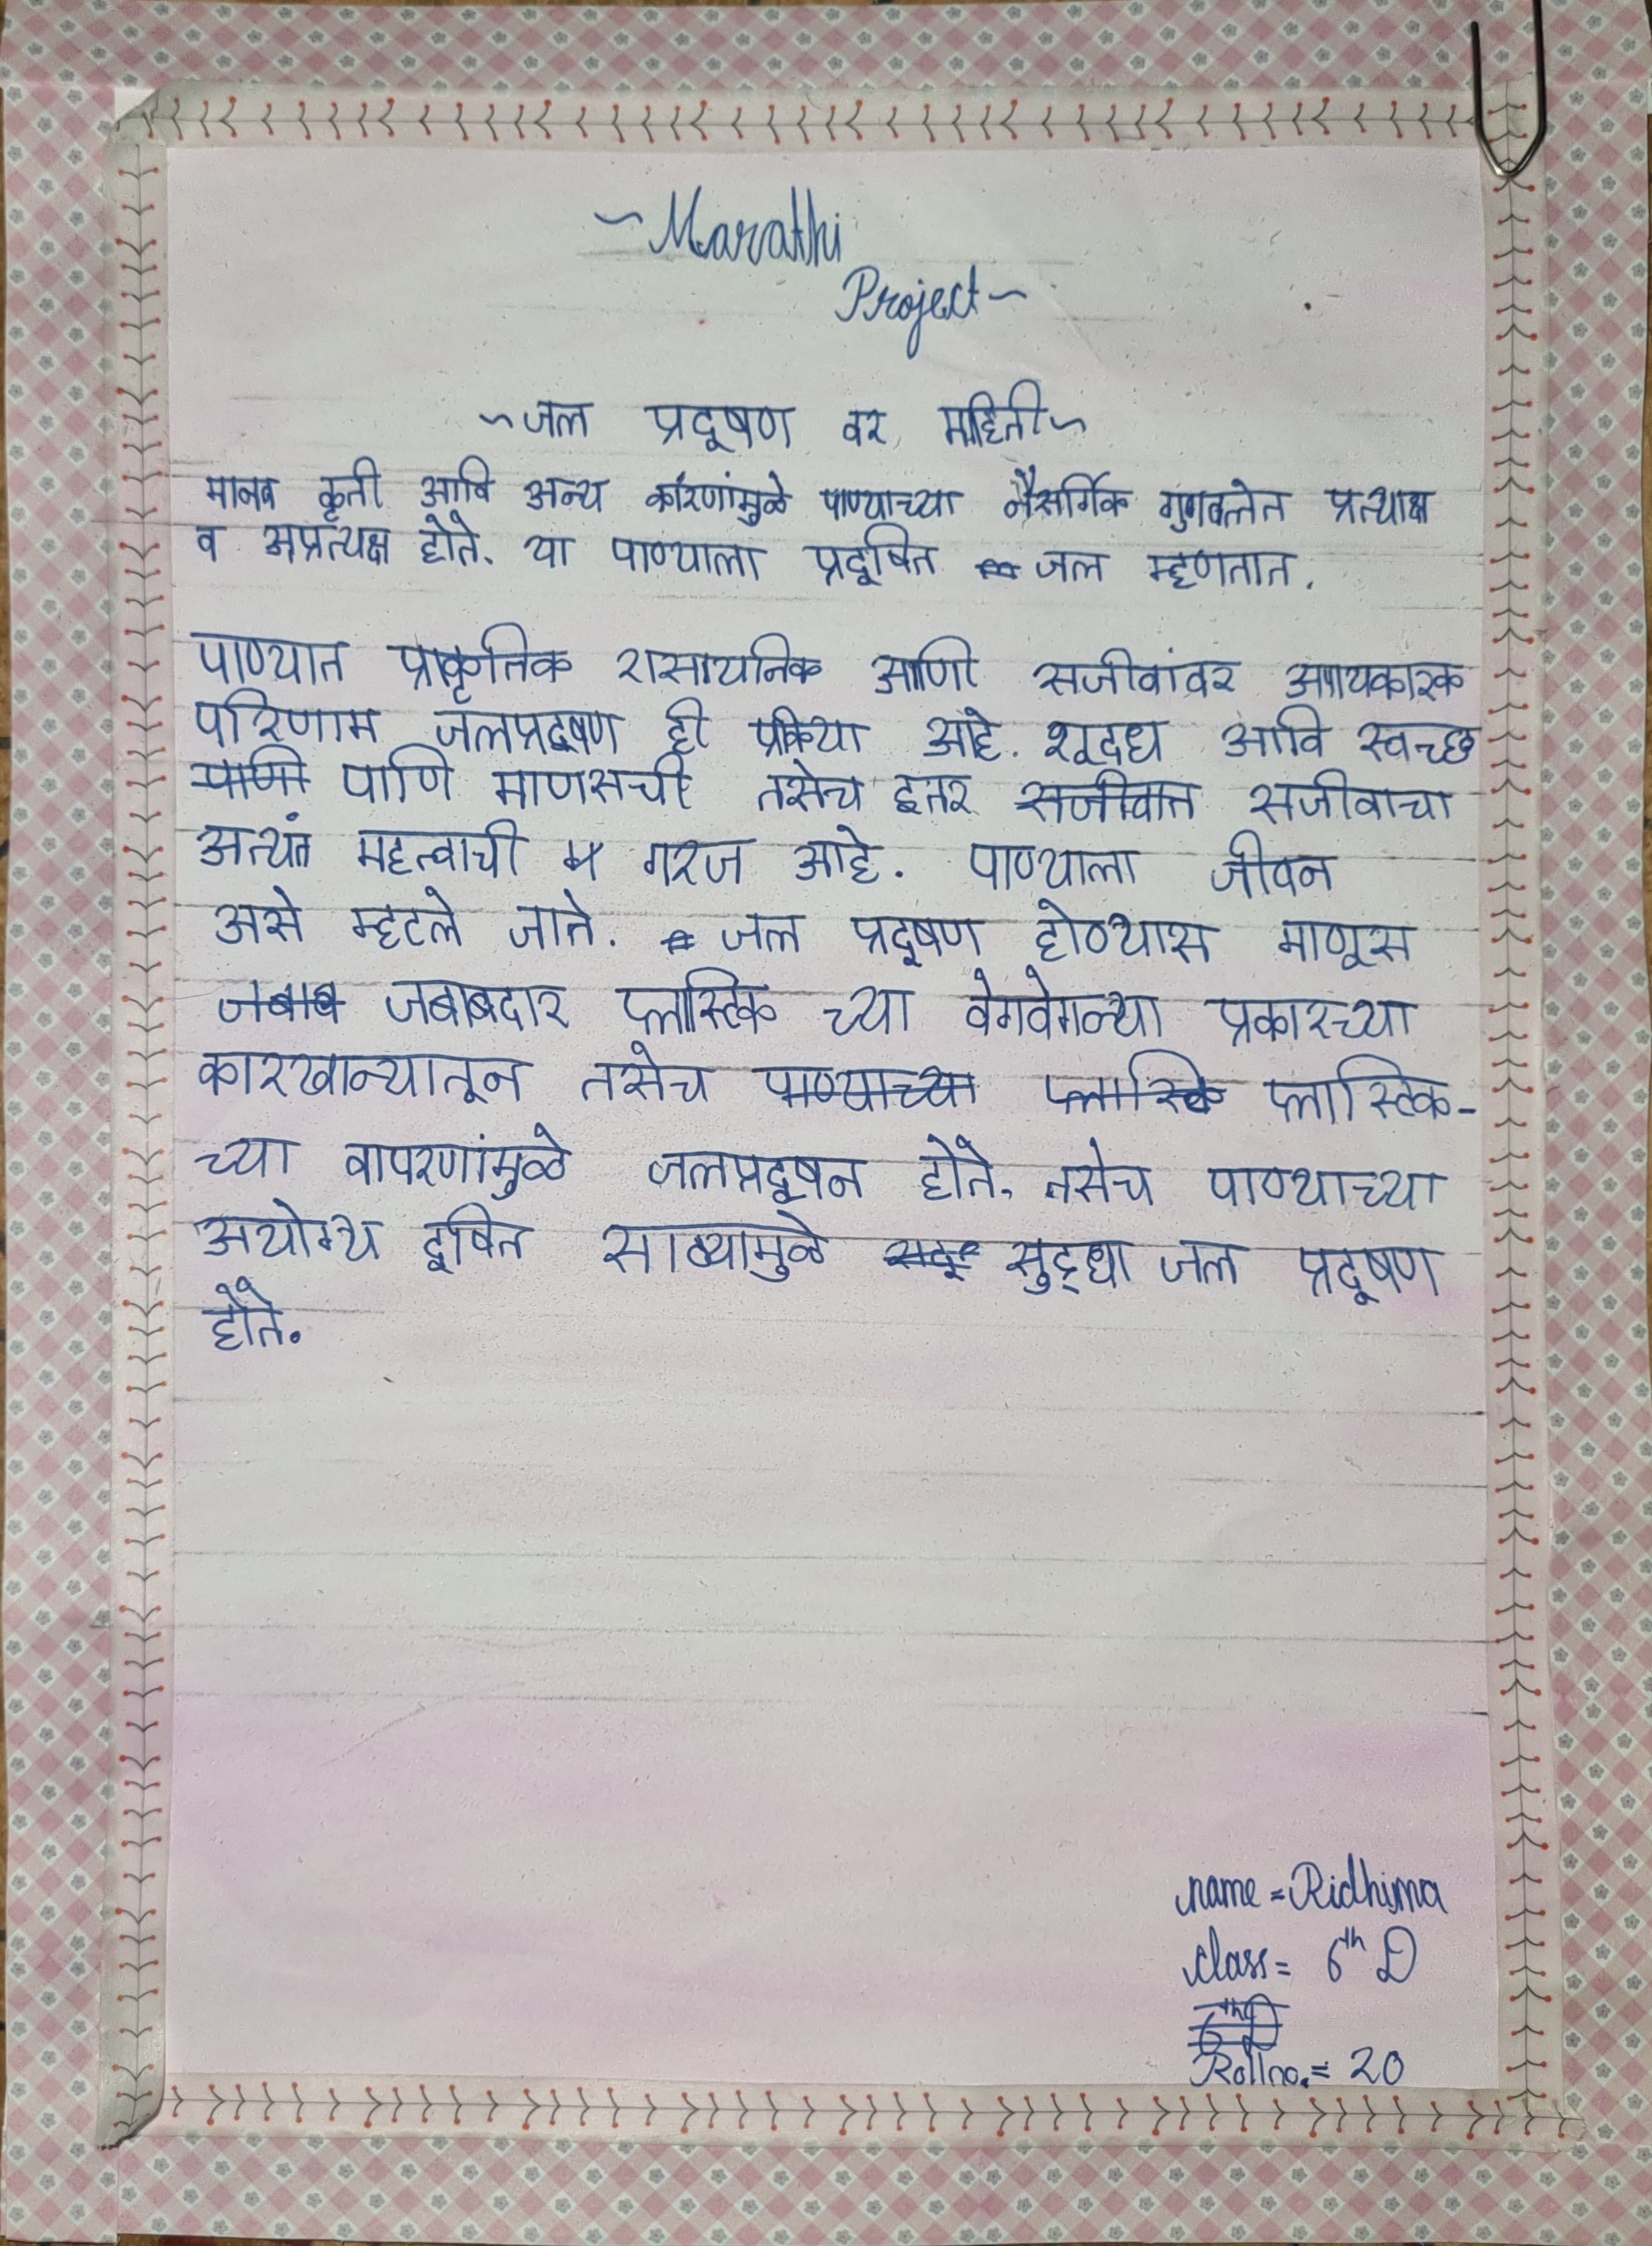 ~Marathi
Project~
~जल प्रदूषण वर माहिती~
मानव कृती आवि अन्य कारणांमुळे पाण्याच्या नैसर्गिक गुणवत्तेत प्रत्याक्ष
व अप्रत्यक्ष होते. या पाण्याला प्रदूषित जल म्हणतात.
पाण्यात प्राकृतिक रासायनिक आणि सजीवांवर अपायकारक
परिणाम जलप्रदूषण ही प्रक्रिया आहे. शूदध आवि स्वच्छ
पाणी पाणि माणसची तसेच इतर सजीवात सजीवाचा
अत्यंत महत्वाची गरज आहे. पाण्याला जीवन
असे म्हटले जाते. जल प्रदूषण होण्यास माणूस
जबाब जबाबदार प्लास्टिक च्या वेगवेगळ्या प्रकारच्या
कारखान्यातून तसेच पाण्याच्या प्लास्टिक प्लास्टिक-
च्या वापरणांमुळे जलप्रदूषन होते. तसेच पाण्याच्या
अयोग्य दूषित साठ्यामुळे सुद्धा जल प्रदूषण
होते.
name = Ridhima
class = 6th D
Rollno. = 20